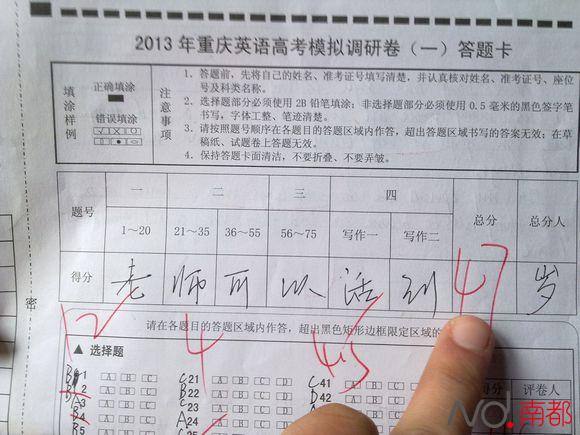 2013年重庆英语高考模拟调研卷（一）答题卡
填涂样例
正确填涂
错误填涂
注意事项
1、答题前，先将自己的姓名、准考证号填写清楚，并认真核对姓名、准考证号、座位号及科类名称。
2、选择题部分必须使用2B铅笔填涂；非选择题部分必须使用0.5毫米的黑色签字笔书写，字体工整、笔迹清楚。
3、请按照题号顺序在各题目的答题区域内作答，超出答题区域书写的答案无效；在草稿纸、试题卷上答题无效。
4、保持答题卡面清洁，不要折叠、不要弄皱。
题号 一 二 三 四 总分 总分人
1～20 21～35 36～55 56～75 写作一 写作二
得分 老 师 可 以 活 到 47 岁
密
请在各题目的答题区域内作答，超出黑色矩形边框限定区域的
12 4 4.5
▲ 选择题
1 A B C C21 A B C D C41
2 A B C B22 A B C D D42
A3 A B C C23
4 A24
5 C25
得分 评卷人
ND.南都